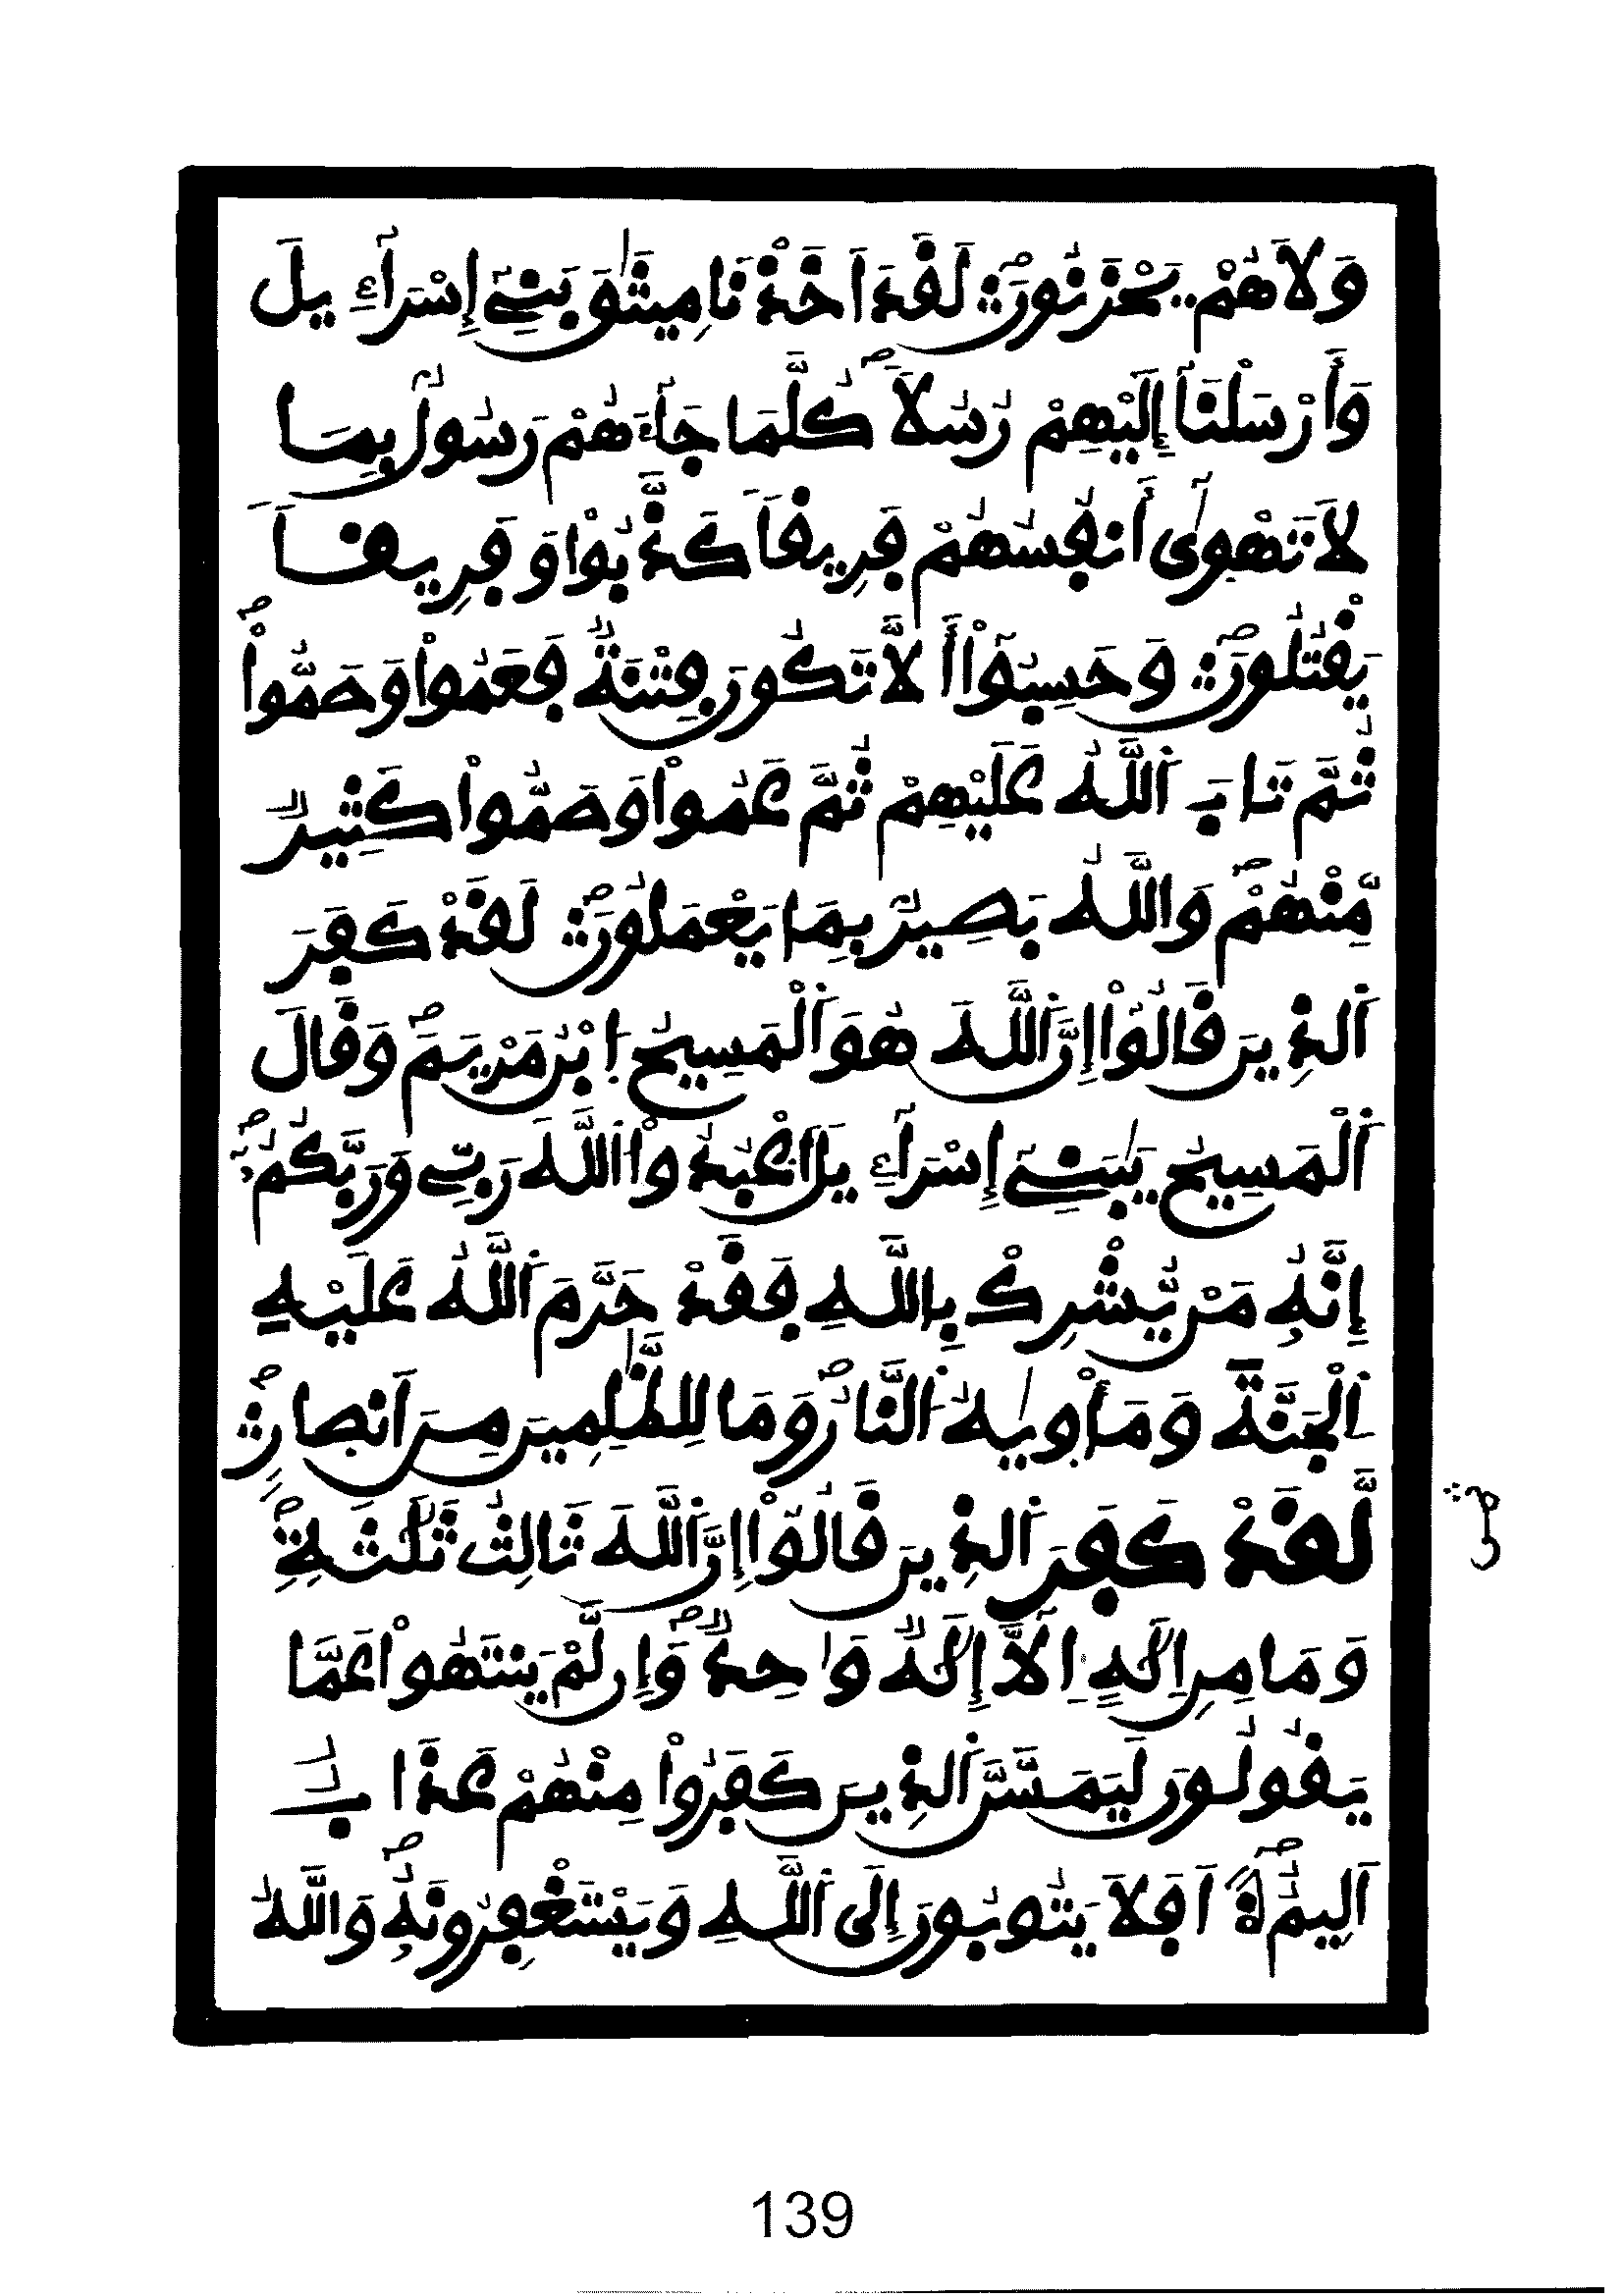 وَلَا هُمْ يَحْزَنُونَ لَقَدَ اَخَذْنَا مِيثَٰقَ بَنِےٓ إِسْرَآءِيلَ
وَأَرْسَلْنَآ إِلَيْهِمْ رُسُلاً كُلَّمَا جَآءَهُمْ رَسُولُۢ بِمَا
لَا تَهْوِىٰٓ أَنفُسُهُمْ فَرِيقاً كَذَّبُواْ وَفَرِيقاً
يَقْتُلُونَ وَحَسِبُوٓاْ أَلَّا تَكُونَ فِتْنَةٌ فَعَمُواْ وَصَمُّواْ
ثُمَّ تَابَ اَللَّهُ عَلَيْهِمْ ثُمَّ عَمُواْ وَصَمُّواْ كَثِيرٌ
مِّنْهُمْ وَاللَّهُ بَصِيرُۢ بِمَا يَعْمَلُونَ لَقَدْ كَفَرَ
اَلذِينَ قَالُوٓاْ إِنَّ اَللَّهَ هُوَ اَلْمَسِيحُ اُ۪بْنُ مَرْيَمَ وَقَالَ
اَلْمَسِيحُ يَٰبَنِےٓ إِسْرَآءِيلَ اَعْبُدُواْ اُللَّهَ رَبِّے وَرَبَّكُمُۥٓ
إِنَّهُۥ مَنْ يُّشْرِكْ بِاللَّهِ فَقَدْ حَرَّمَ اَللَّهُ عَلَيْهِ
اِلْجَنَّةَ وَمَأْوِيٰهُ اُلنَّارُ وَمَا لِلظَّٰلِمِينَ مِنَ اَنصَارٍ
لَّقَدْ كَفَرَ اَلذِينَ قَالُوٓاْ إِنَّ اَللَّهَ ثَالِثُ ثَلَٰثَةٍ
وَمَا مِنِ اِلَٰهٍ اِلَّآ إِلَٰهٌ وَٰحِدٌ وَإِن لَّمْ يَنتَهُواْ عَمَّا
يَقُولُونَ لَيَمَسَّنَّ اَلذِينَ كَفَرُواْ مِنْهُمْ عَذَابٌ
اَلِيمٌ اَفَلَا يَتُوبُونَ إِلَى اَللَّهِ وَيَسْتَغْفِرُونَهُۥ وَاللَّهُ
139